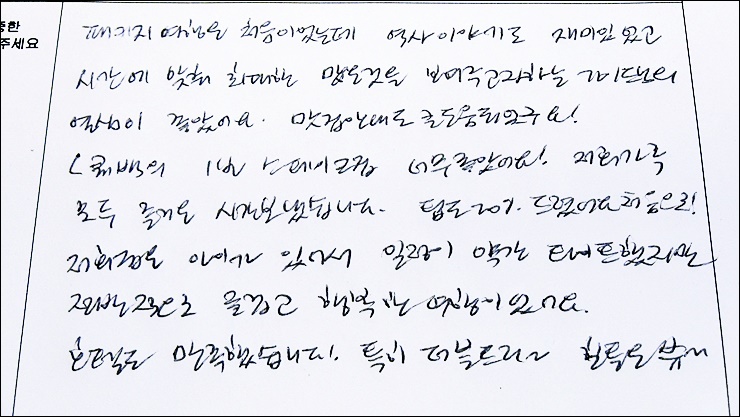 중한
주세요
패키지 여행은 처음이었는데 역사 이야기도 재미있었고
시간에 맞춰 최대한 많은것을 보여주고자하는 가이드님의
열심이 좋았어요. 맛집안내도 큰도움되었구요!
너무좋았어요! 저희가족
모두 즐거운 시간보냈습니다. 팁도 드렸어요 처음으로!
저희집은 아이가 있어서 일정이 약간 타이트했지만
전반적으로 즐겁고 행복한 여행이었어요.
호텔도 만족했습니다! 특히 더블트리는